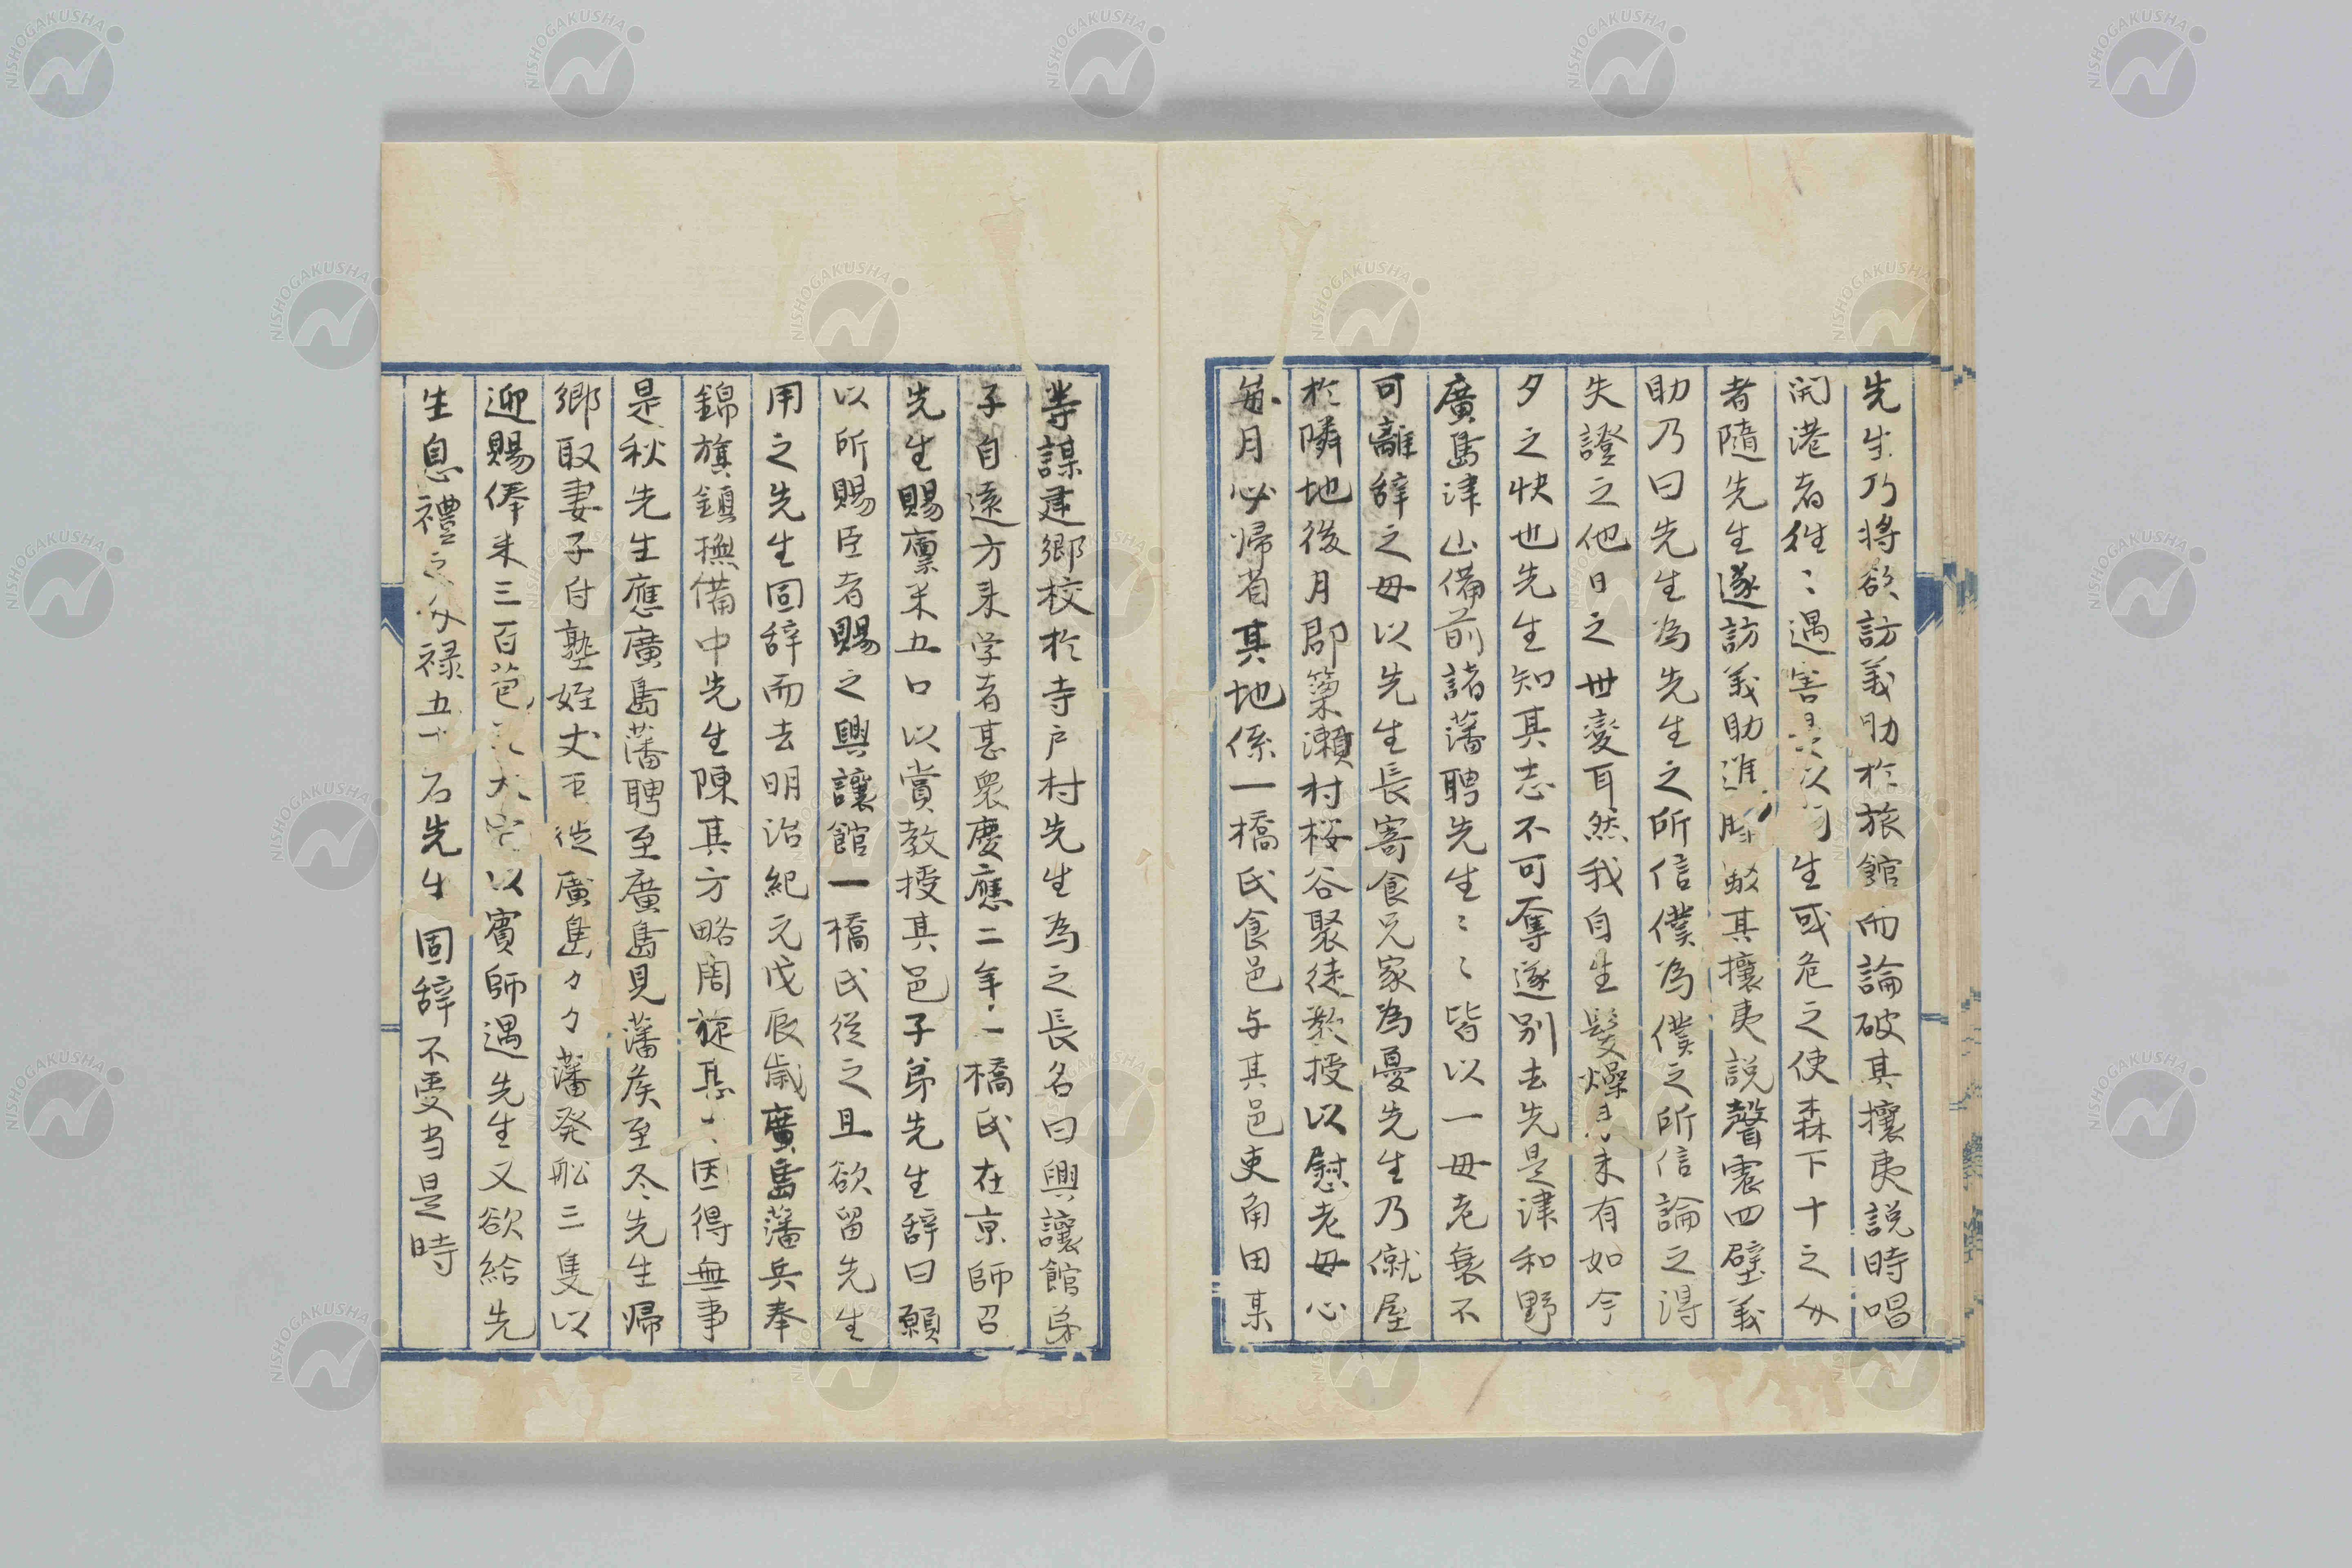 先生乃将欲訪義助於旅館而論破其攘夷説時唱
開港者往〻遇害 以 生或危之使森下十之介
者隨先生遂訪義助進 駁其攘夷説聲震四壁義
助乃曰先生為先生之所信僕為僕之所信論之得
失證之他日之世變耳然我自生髮燥 未有如今
夕之快也先生知其志不可奪遂別去先是津和野
廣島津山備前諸藩聘先生〻〻皆以一母老衰不
可離辞之母以先生長寄食兄家為憂先生乃僦屋
於隣地後月郡簗瀬村桜谷聚徒教授以慰老母心
毎月必帰省其地係一橋氏食邑与其邑吏角田某
等謀建郷校於寺戸村先生為之長名曰興讓館弟
子自遠方来学者甚衆慶應二年一橋氏在京師召
先生賜廩米五口以賞教授其邑子弟先生辞曰願
以所賜臣者賜之興讓館一橋氏従之且欲留先生
用之先生固辞而去明治紀元戊辰歳廣島藩兵奉
錦旗鎮撫備中先生陳其方略周旋甚 因得無事
是秋先生應廣島藩聘至廣島見藩侯至冬先生帰
郷取妻子自塾姪丈 従廣島々々藩発舩三隻以
迎賜俸米三百苞 大 以賓師遇先生又欲給先
生息禮之介禄五十石先生固辞不受当是時
NISHOGAKUSHA